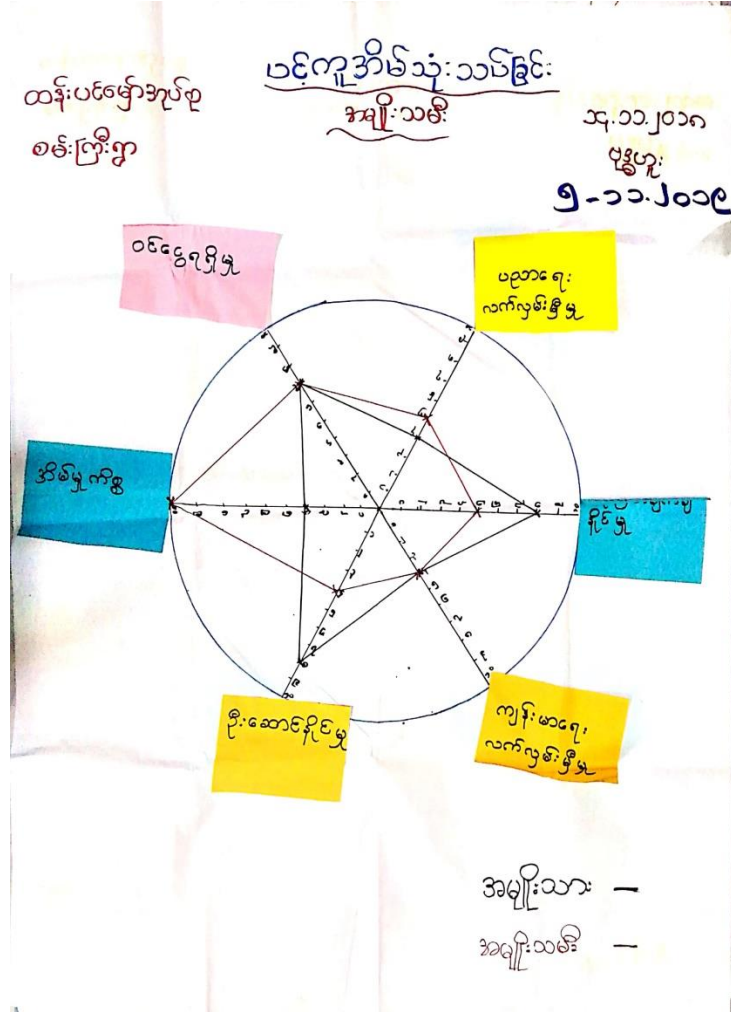 ပင့်ကူအိမ်သုံးသပ်ခြင်း
အမျိုးသမီး
ထန်းပင်မှော်အုပ်စု
စမ်းကြီးရွာ
၁၄.၁၁.၂၀၁၈
ဗုဒ္ဓဟူး
၅-၁၁.၂၀၁၉
ဝင်ငွေရရှိမှု
ပညာရေး
လက်လှမ်းမှီမှု
အိမ်မှုကိစ္စ
နိုင်မှု
ဦးဆောင်နိုင်မှု
ကျန်းမာရေး
လက်လှမ်းမှီမှု
အမျိုးသား –
အမျိုးသမီး –